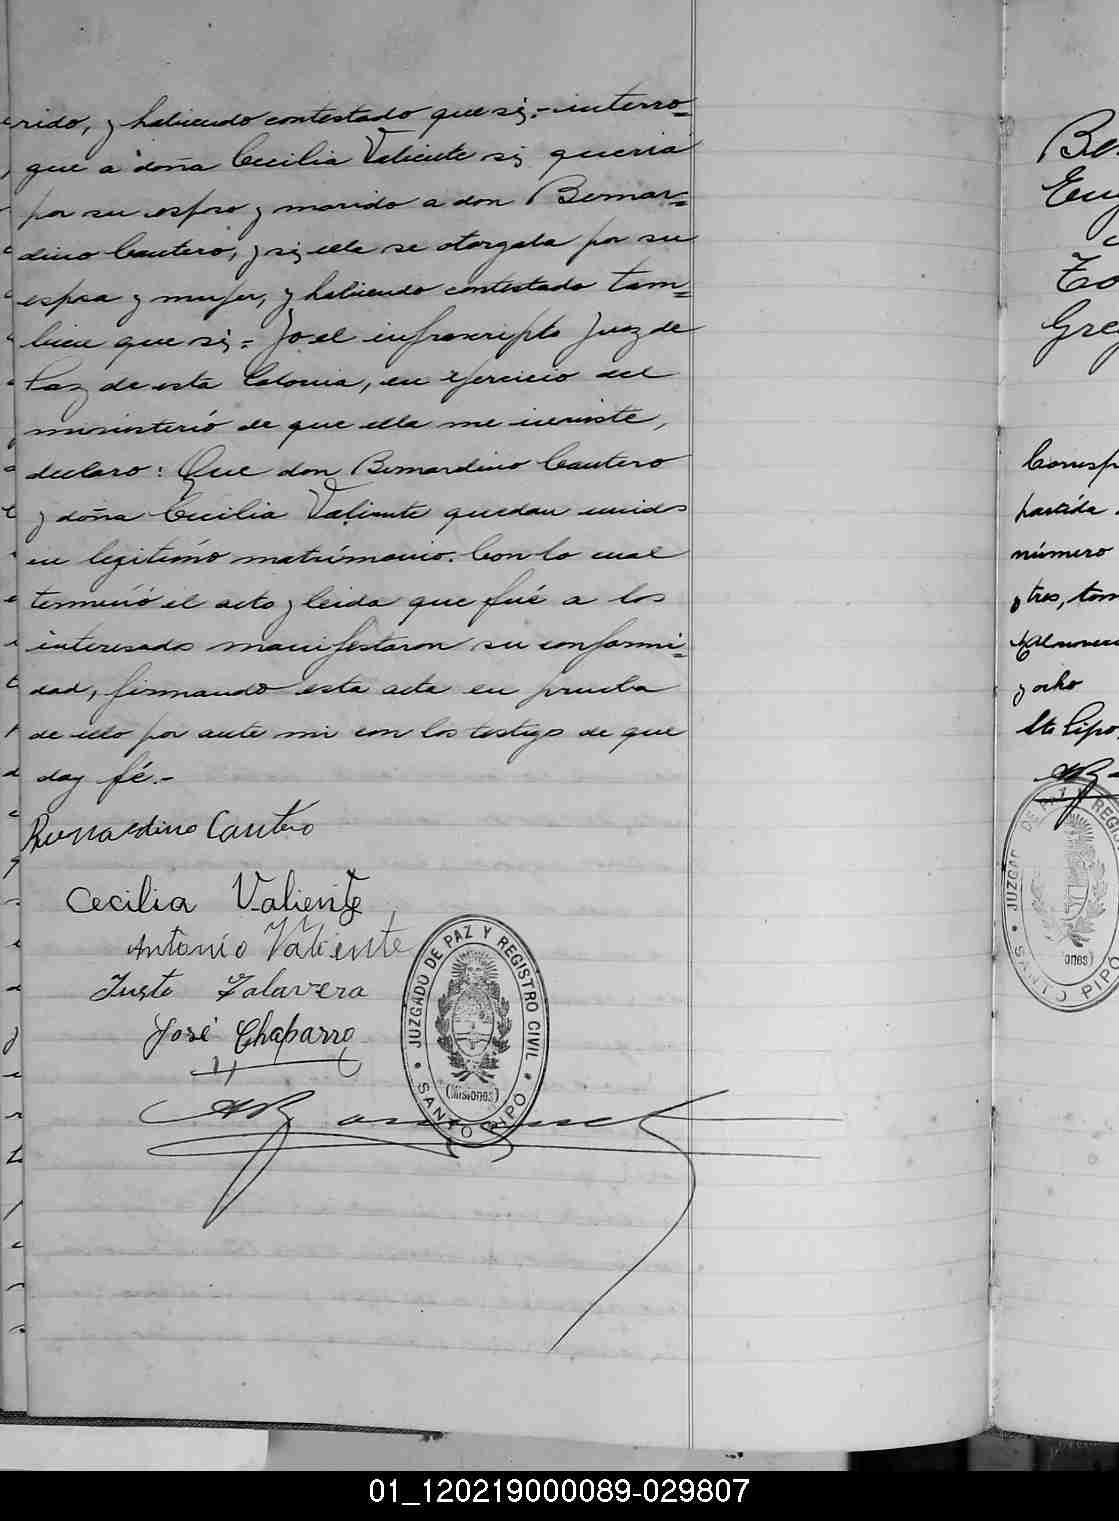 rido, y habiendo contestado que si;-interro=
gue a doña Cecilia Valiente si queria
por su esposo y marido a don Bernar=
dino Cantero, y si ella se otorgaba por su
esposa y mujer, y habiendo contestado tam=
bien que si;= Yo el infrascripto Juez de
Paz de esta Colonia, en ejercicio del
ministerio de que ella me inviste,
declaro: Que don Bernardino Cantero
y doña Cecilia Valiente quedan unidos
en legitimo matrimonio. Con lo cual
terminó el acto y leida que fué a los
interesados manifestaron su conformi=
dad, firmando esta acta en prueba
de ello por ante mi con los testigos de que
doy fé.-
Bernardino Cantero
Cecilia Valiente
Antonio Valiente
Justo Talavera
José Chaparro
JUZGADO DE PAZ Y REGISTRO CIVIL
(Misiones)
SANTO PIPÓ
Be
Eug
To
Gre
Corresp
partida
número
y tres, tom
y ocho
Sto Pipo,
JUZGAD DE PAZ Y REGI
ones)
SANTO PIPÓ
01_120219000089-029807